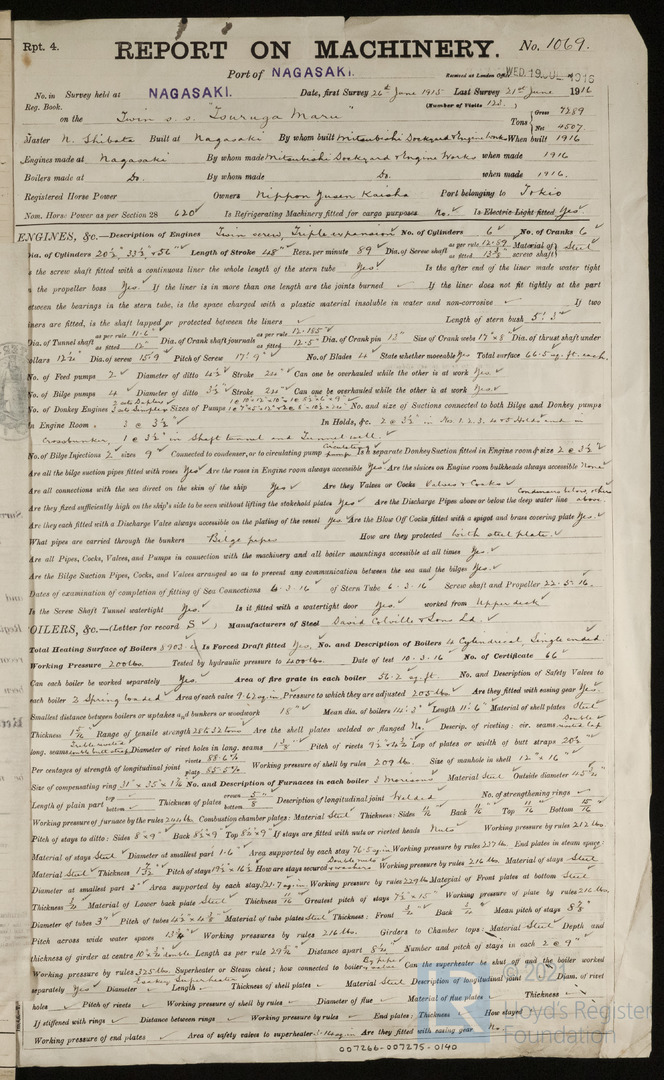 Rpt. 4.
REPORT ON MACHINERY.
No. 1069.
Port of NAGASAKI.
Received at London Office WED. 19 JUL 1916
No. in Survey held at NAGASAKI. Date, first Survey 26th June 1915 Last Survey 21st June 1916
Reg. Book. (Number of Visits 123.)
on the Twin s.s. "Tsuruga Maru" Tons Gross 7289 Net 4507
Master N. Shibata Built at Nagasaki By whom built Mitsubishi Dockyard & Engine Works When built 1916
Engines made at Nagasaki By whom made Mitsubishi Dockyard & Engine Works when made 1916
Boilers made at Do. By whom made Do. when made 1916.
Registered Horse Power Owners Nippon Yusen Kaisha Port belonging to Tokio
Nom. Horse Power as per Section 28 620 Is Refrigerating Machinery fitted for cargo purposes No. Is Electric Light fitted Yes
ENGINES, &c.—Description of Engines Twin screw, Triple expansion No. of Cylinders 6 No. of Cranks 6
Dia. of Cylinders 20½" 33½" & 56" Length of Stroke 48" Revs. per minute 89 Dia. of Screw shaft as per rule 12.89 as fitted 13⅜ Material of screw shaft Steel
s the screw shaft fitted with a continuous liner the whole length of the stern tube Yes Is the after end of the liner made water tight
n the propeller boss Yes If the liner is in more than one length are the joints burned If the liner does not fit tightly at the part
etween the bearings in the stern tube, is the space charged with a plastic material insoluble in water and non-corrosive If two
iners are fitted, is the shaft lapped or protected between the liners Length of stern bush 5' 3"
Dia. of Tunnel shaft as per rule 11.6" as fitted 12" Dia. of Crank shaft journals as per rule 12.185 as fitted 12.5" Dia. of Crank pin 13" Size of Crank webs 17" x 8" Dia. of thrust shaft under
ollars 12½ Dia. of screw 15' 9" Pitch of Screw 17' 9" No. of Blades 4 State whether moveable Yes Total surface 66.5 sq. ft. each.
No. of Feed pumps 2 Diameter of ditto 4½ Stroke 24" Can one be overhauled while the other is at work Yes
No. of Bilge pumps 4 Diameter of ditto 3½ Stroke 24 Can one be overhauled while the other is at work Yes
No. of Donkey Engines Sizes of Pumps No. and size of Suctions connected to both Bilge and Donkey pumps
In Engine Room 3 @ 3½" In Holds, &c. 2 @ 3½" in No. 1. 2. 3. 4 & 5 Holds and in
crossbunker, 1 @ 3½" in Shaft tunnel and Tunnel well.
No. of Bilge Injections 2 sizes 9" Connected to condenser, or to circulating pump Circulating pump Is a separate Donkey Suction fitted in Engine room & size 2 @ 3½"
Are all the bilge suction pipes fitted with roses Yes Are the roses in Engine room always accessible Yes Are the sluices on Engine room bulkheads always accessible None
Are all connections with the sea direct on the skin of the ship Yes Are they Valves or Cocks Valves & Cocks
Are they fixed sufficiently high on the ship's side to be seen without lifting the stokehold plates Yes Are the Discharge Pipes above or below the deep water line Condensers below, others above.
Are they each fitted with a Discharge Valve always accessible on the plating of the vessel Yes Are the Blow Off Cocks fitted with a spigot and brass covering plate Yes.
What pipes are carried through the bunkers Bilge pipes How are they protected With steel plate,
Are all Pipes, Cocks, Valves, and Pumps in connection with the machinery and all boiler mountings accessible at all times Yes.
Are the Bilge Suction Pipes, Cocks, and Valves arranged so as to prevent any communication between the sea and the bilges Yes.
Dates of examination of completion of fitting of Sea Connections 6.3.16 of Stern Tube 6.3.16 Screw shaft and Propeller 22.5.16.
Is the Screw Shaft Tunnel watertight Yes. Is it fitted with a watertight door Yes. worked from Upper deck
OILERS, &c.—(Letter for record S) Manufacturers of Steel David Colville & Sons Ld.
Total Heating Surface of Boilers Is Forced Draft fitted Yes. No. and Description of Boilers 4 Cylindrical, Single ended.
Working Pressure 200 lbs. Tested by hydraulic pressure to 400 lbs. Date of test 10.3.16 No. of Certificate 66
Can each boiler be worked separately Yes Area of fire grate in each boiler 56.2 sq. ft. No. and Description of Safety Valves to
each boiler 2 Spring loaded Area of each valve 9.62 sq. in. Pressure to which they are adjusted 205 lbs. Are they fitted with easing gear Yes
Smallest distance between boilers or uptakes and bunkers or woodwork 18" Mean dia. of boilers 14' 3" Length 11' 6" Material of shell plates Steel
Thickness Range of tensile strength 28 to 32 tons Are the shell plates welded or flanged No. Descrip. of riveting: cir. seams Double riveted lap
long. seams Diameter of rivet holes in long. seams 1⅜" Pitch of rivets Lap of plates or width of butt straps 20½"
Per centages of strength of longitudinal joint rivets 88.6% plate 85.5% Working pressure of shell by rules 209 lbs. Size of manhole in shell 12" x 16"
Size of compensating ring No. and Description of Furnaces in each boiler 3 Morisons Material Steel Outside diameter
Length of plain part top bottom Thickness of plates crown bottom ⅝ Description of longitudinal joint Welded No. of strengthening rings
Working pressure of furnace by the rules Combustion chamber plates: Material Steel Thickness: Sides Back 11/16" Top 11/16 Bottom 15/16
Pitch of stays to ditto: Sides 8" x 9" Back Top If stays are fitted with nuts or riveted heads Nuts Working pressure by rules 212 lbs.
Material of stays Steel Diameter at smallest part 1.6" Area supported by each stay 76.5 sq in Working pressure by rules 237 lb. End plates in steam space:
Material Steel Thickness Pitch of stays How are stays secured Double nuts & washers Working pressure by rules 216 lbs. Material of stays Steel
Diameter at smallest part Area supported by each stay Working pressure by rules 229 lb. Material of Front plates at bottom Steel
Thickness Material of Lower back plate Steel Thickness Greatest pitch of stays Working pressure of plate by rules 216 lbs.
Diameter of tubes 3" Pitch of tubes Material of tube plates Steel Thickness: Front Back Mean pitch of stays
Pitch across wide water spaces 13¾" Working pressures by rules 216 lbs. Girders to Chamber tops: Material Steel Depth and
thickness of girder at centre Length as per rule Distance apart 8¾ Number and pitch of stays in each 2 @ 9"
Working pressure by rules Superheater or Steam chest; how connected to boiler By pipe & valve Can the superheater be shut off and the boiler worked
separately Yes Diameter Length Thickness of shell plates Material Steel Description of longitudinal joint Diam. of rivet
holes Pitch of rivets Working pressure of shell by rules Diameter of flue Material of flue plates Thickness
If stiffened with rings Distance between rings Working pressure by rules End plates: Thickness How stayed
Working pressure of end plates Area of safety valves to superheater Are they fitted with easing gear
007266-007275-0140
© 2021
Lloyd's Register
Foundation